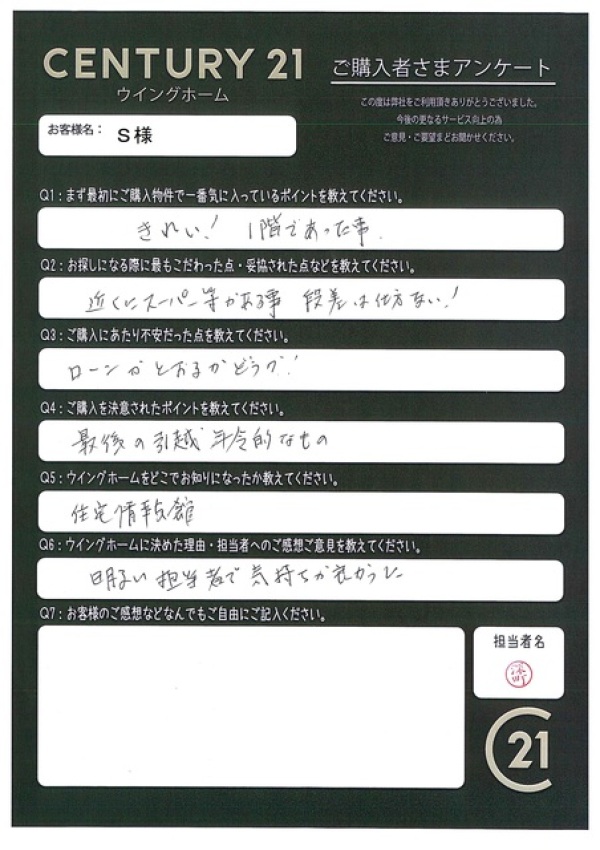 CENTURY 21
ウイングホーム
ご購入者さまアンケート
この度は弊社をご利用頂きありがとうございました。
今後の更なるサービス向上の為
ご意見・ご要望までお聞かせください。
お客様名： S様
Q1：まず最初にご購入物件で一番気に入っているポイントを教えてください。
きれい！ 1階であった事.
Q2：お探しになる際に最もこだわった点・妥協された点などを教えてください。
近くにスーパー等がある事 段差は仕方ない！
Q3：ご購入にあたり不安だった点を教えてください。
ローンがとおるかどうか！
Q4：ご購入を決意されたポイントを教えてください。
最後の引越 年令的なもの
Q5：ウイングホームをどこでお知りになったか教えてください。
住宅情報館
Q6：ウイングホームに決めた理由・担当者へのご感想ご意見を教えてください。
明るい担当者で気持ちが良かった
Q7：お客様のご感想などなんでもご自由にご記入ください。
担当者名
21